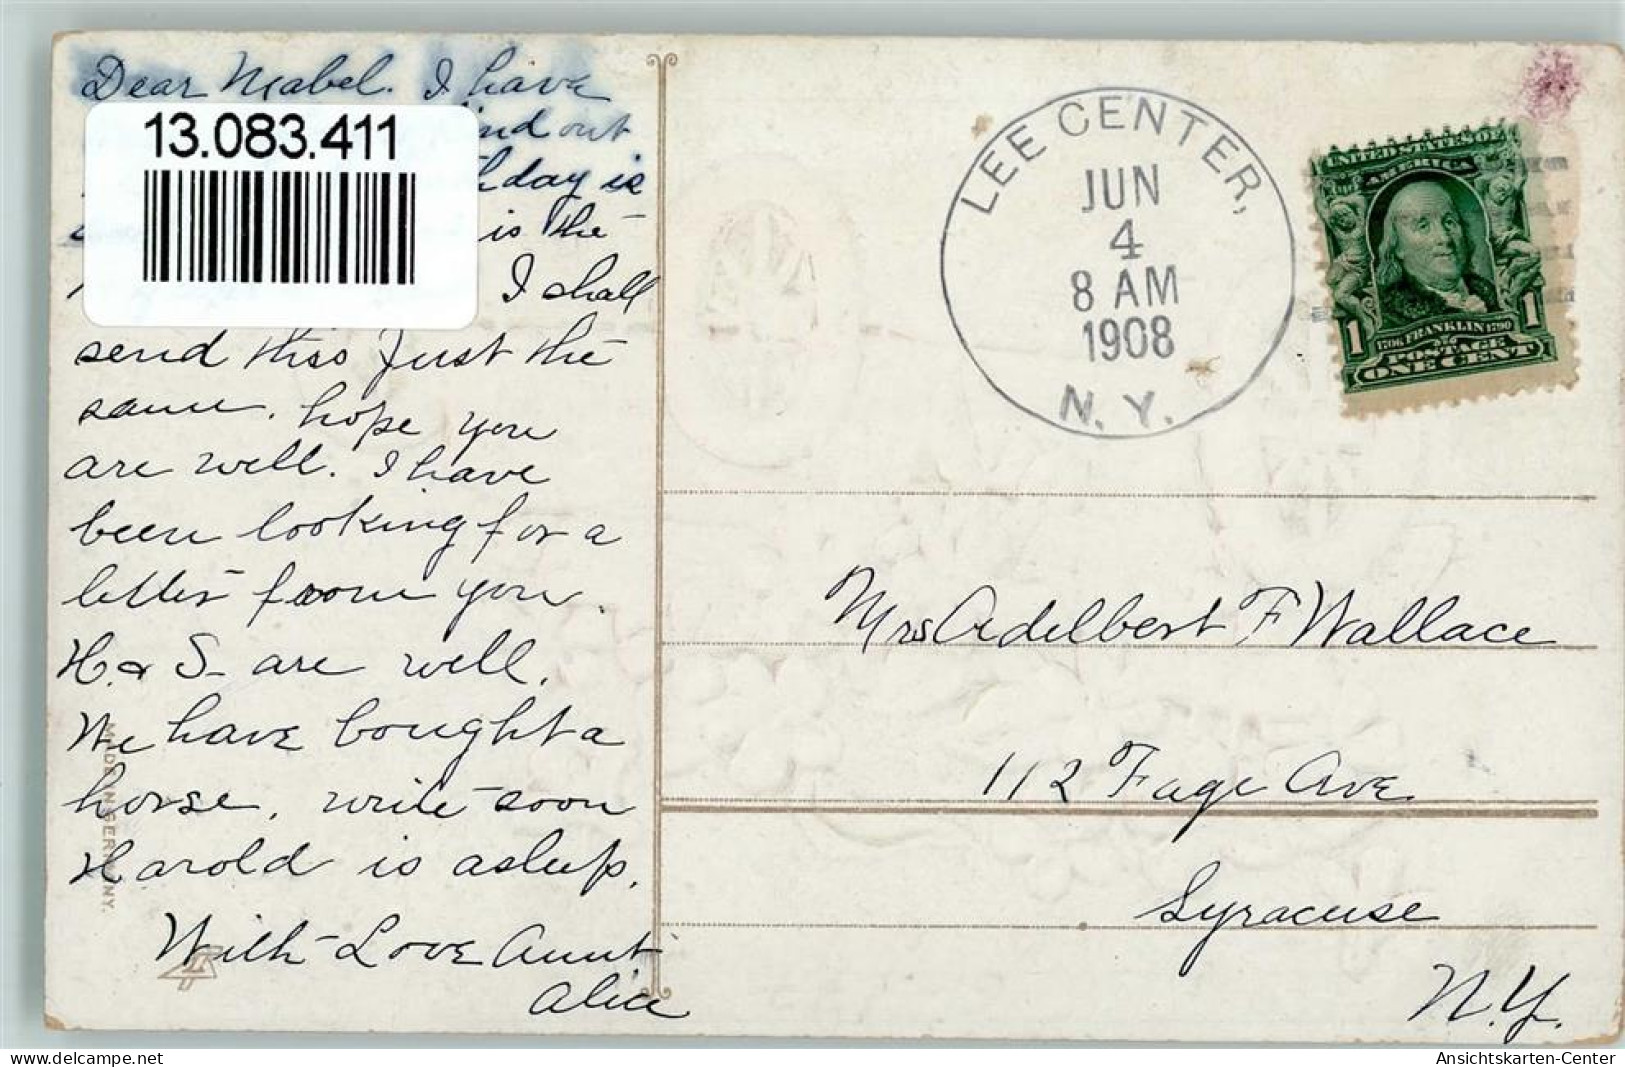 Dear Mabel. I have
13.083.411
find out
thday is
is the
I shall
send this just the
same. hope you
are well. I have
been looking for a
letter from you.
H. & S- are well.
We have bought a
horse. write soon
Harold is asleep.
With Love Aunt
Alice
MADE IN GERMANY.
LEE CENTER,
JUN
4
8 AM
1908
N. Y.
UNITED STATES OF
AMERICA
1706 FRANKLIN 1790
1 1
POSTAGE
ONE CENT
Mrs Adelbert F Wallace
112 Fage Ave
Syracuse
N.Y.
Ansichtskarten-Center
www.delcampe.net